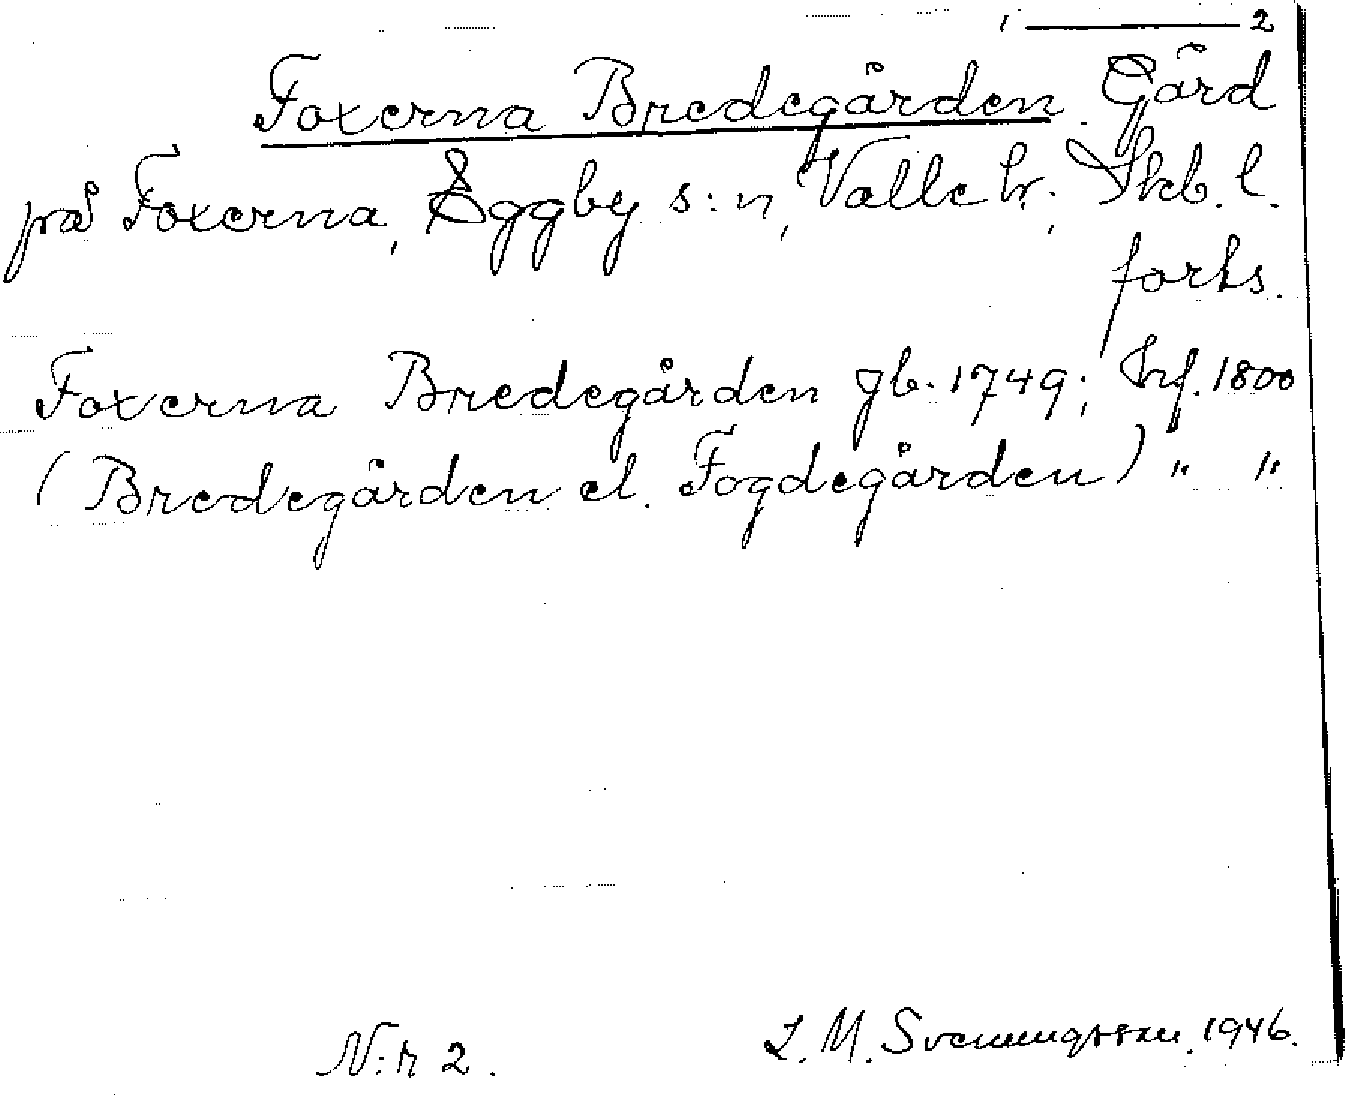 1 — 2
Foxerna Bredegården. Gård
på Foxerna, Eggby s:n, Valle hr; Skb. l.
forts.
Foxerna Bredegården gb. 1749; Hrf. 1800
(Bredegården el. Fogdegården) " "
N:r 2. L. M. Svenungsson. 1946.